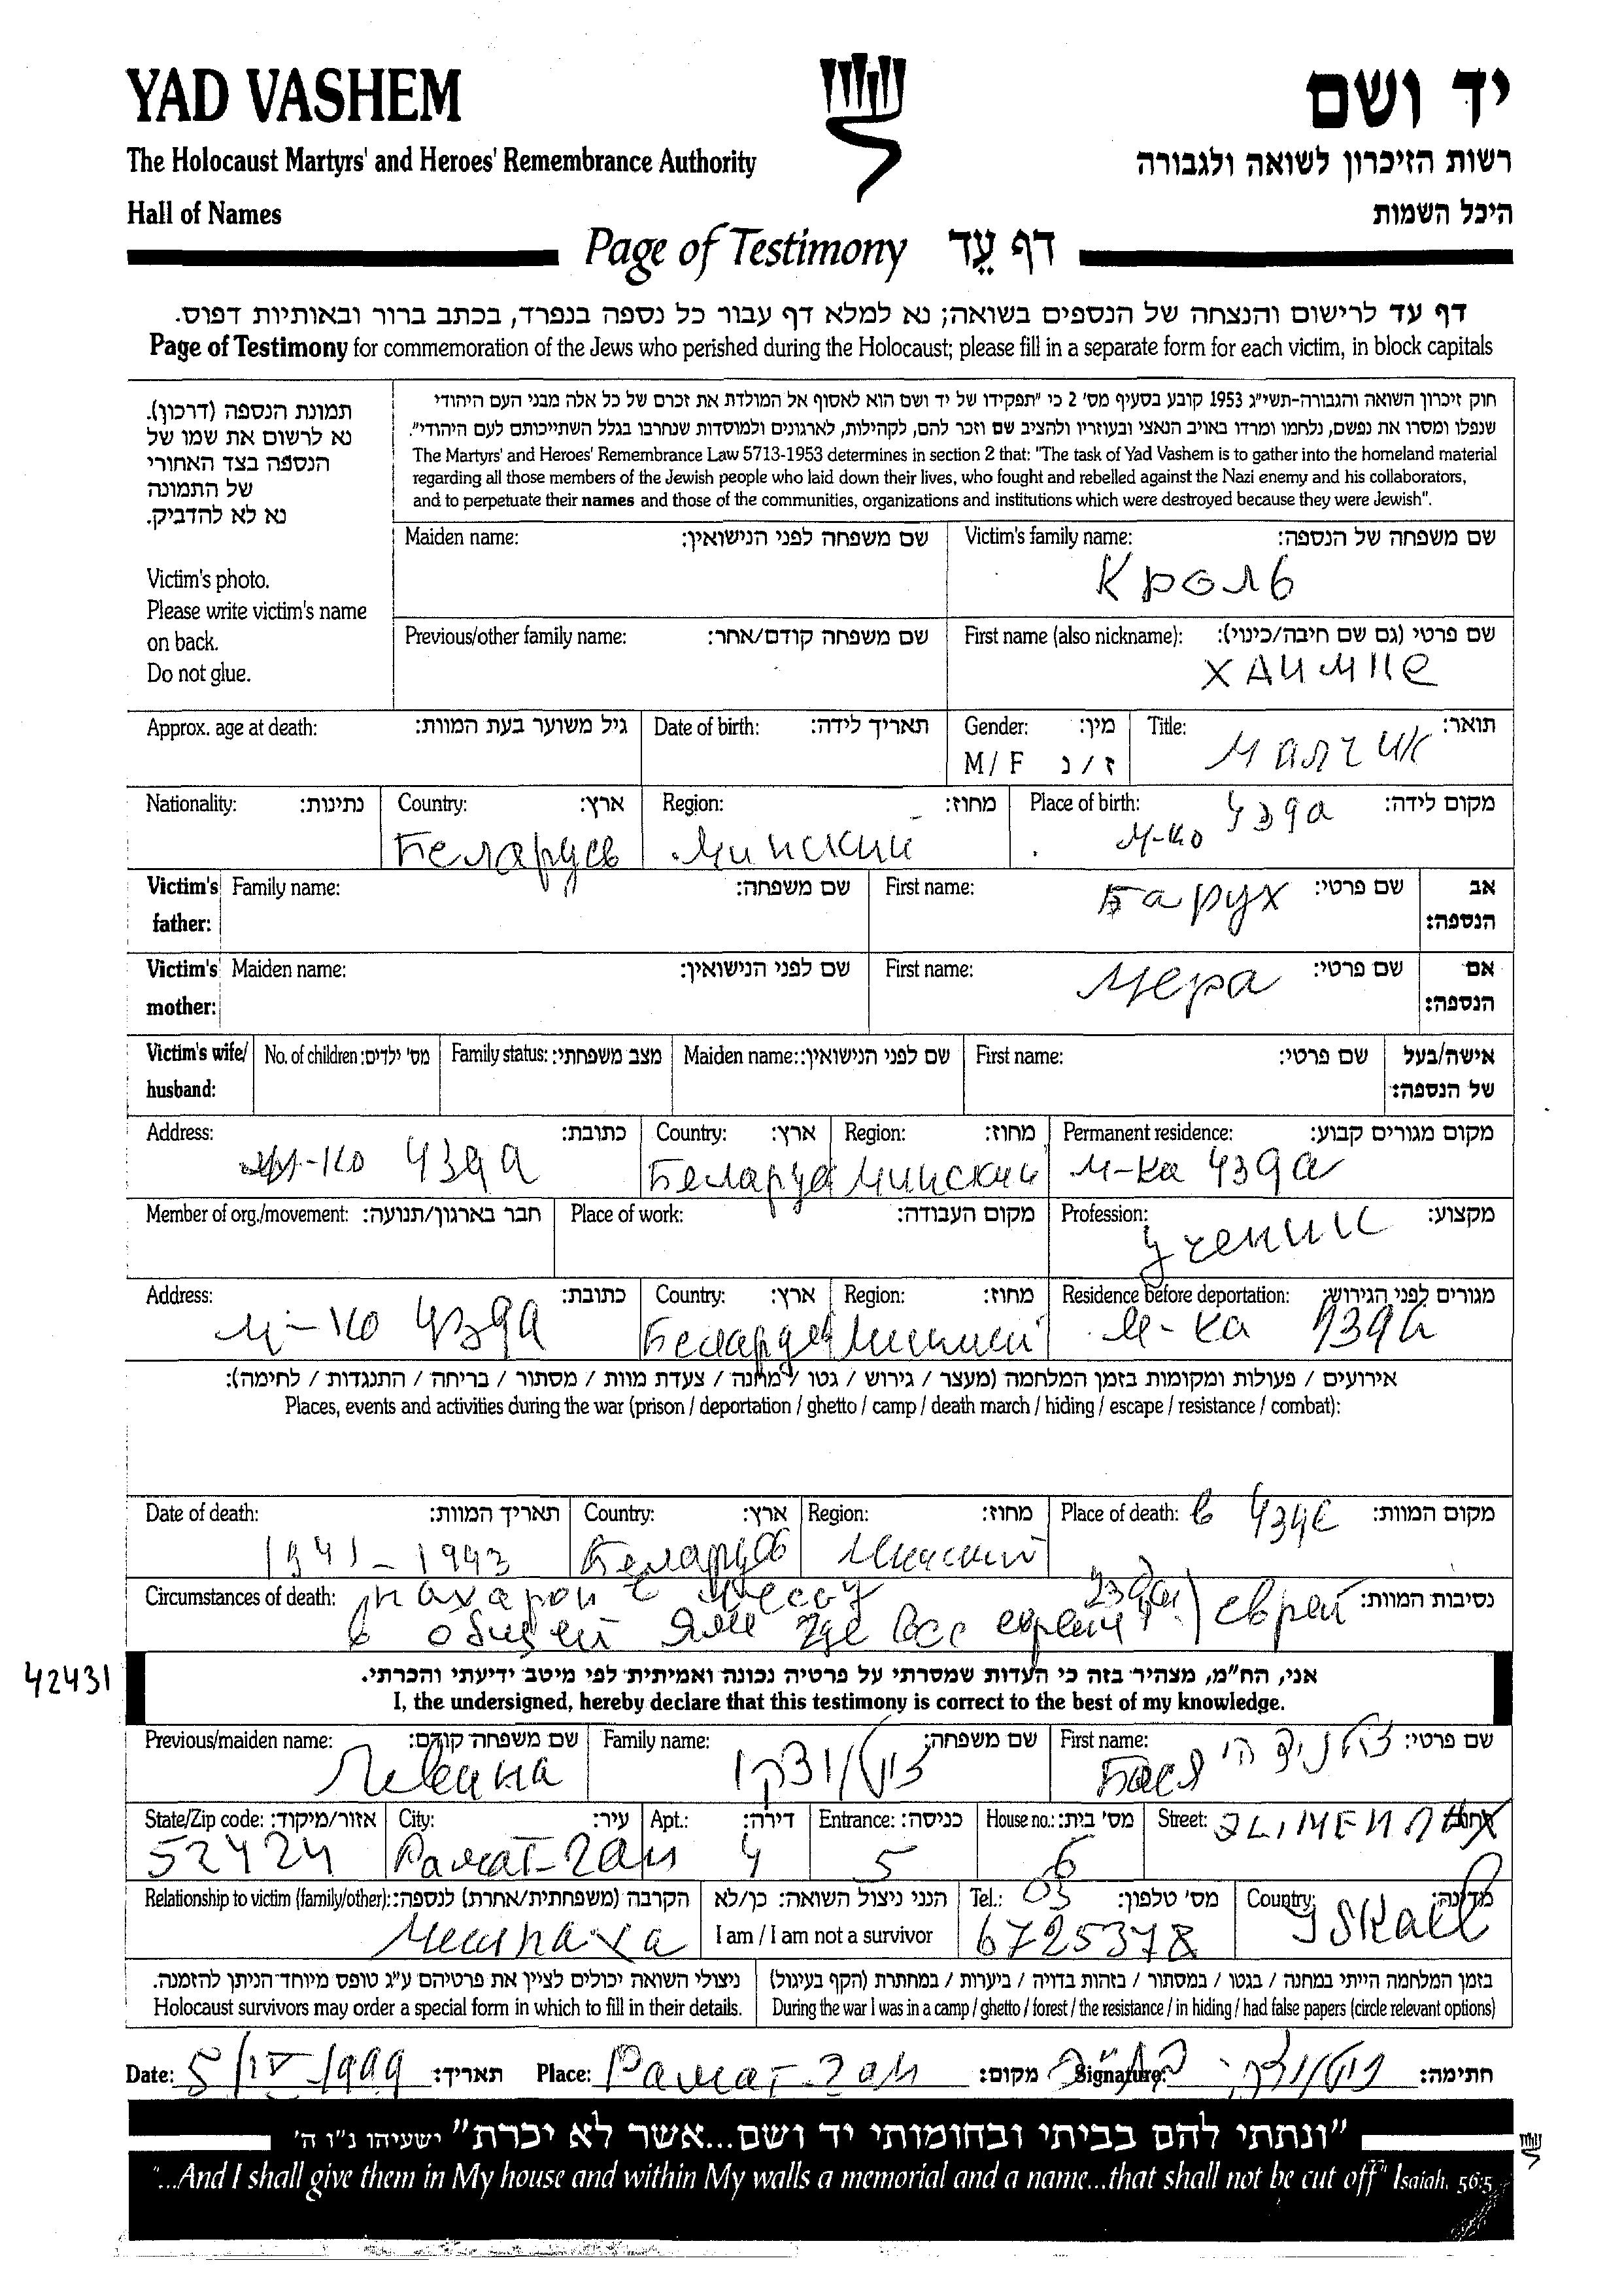 YAD VASHEM
יד ושם
The Holocaust Martyrs' and Heroes' Remembrance Authority
רשות הזיכרון לשואה ולגבורה
Hall of Names
היכל השמות
Page of Testimony דף עֵד
דף עד לרישום והנצחה של הנספים בשואה; נא למלא דף עבור כל נספה בנפרד, בכתב ברור ובאותיות דפוס.
Page of Testimony for commemoration of the Jews who perished during the Holocaust; please fill in a separate form for each victim, in block capitals
תמונת הנספה (דרכון).
נא לרשום את שמו של
הנספה בצד האחורי
של התמונה
נא לא להדביק.
Victim's photo.
Please write victim's name
on back.
Do not glue.
חוק זיכרון השואה והגבורה-תשי״ג 1953 קובע בסעיף מס' 2 כי "תפקידו של יד ושם הוא לאסוף אל המולדת את זכרם של כל אלה מבני העם היהודי
שנפלו ומסרו את נפשם, נלחמו ומרדו באויב הנאצי ובעוזריו ולהציב שם וזכר להם, לקהילות, לארגונים ולמוסדות שנחרבו בגלל השתייכותם לעם היהודי".
The Martyrs' and Heroes' Remembrance Law 5713-1953 determines in section 2 that: "The task of Yad Vashem is to gather into the homeland material
regarding all those members of the Jewish people who laid down their lives, who fought and rebelled against the Nazi enemy and his collaborators,
and to perpetuate their names and those of the communities, organizations and institutions which were destroyed because they were Jewish".
Maiden name: שם משפחה לפני הנישואין: Victim's family name: שם משפחה של הנספה:
Кроль
Previous/other family name: שם משפחה קודם/אחר: First name (also nickname): שם פרטי (גם שם חיבה/כינוי):
Хаимпе
Approx. age at death: גיל משוער בעת המוות: Date of birth: תאריך לידה: Gender: מין: Title: תואר:
M / F ז / נ Малчик
Nationality: נתינות: Country: ארץ: Region: מחוז: Place of birth: מקום לידה:
Беларусь Минский м-ко Узда
Victim's father: Family name: שם משפחה: First name: שם פרטי: אב הנספה:
Барух
Victim's mother: Maiden name: שם לפני הנישואין: First name: שם פרטי: אם הנספה:
Мера
Victim's wife/ husband: No. of children: מס' ילדים: Family status: מצב משפחתי: Maiden name: שם לפני הנישואין: First name: שם פרטי: אישה/בעל של הנספה:
Address: כתובת: Country: ארץ: Region: מחוז: Permanent residence: מקום מגורים קבוע:
м-ко Узда Беларусь Минский м-ка Узда
Member of org./movement: חבר בארגון/תנועה: Place of work: מקום העבודה: Profession: מקצוע:
Ученик
Address: כתובת: Country: ארץ: Region: מחוז: Residence before deportation: מגורים לפני הגירוש:
м-ко Узда Беларусь Минский м-ка Узда
אירועים / פעולות ומקומות בזמן המלחמה (מעצר / גירוש / גטו / מחנה / צעדת מוות / מסתור / בריחה / התנגדות / לחימה):
Places, events and activities during the war (prison / deportation / ghetto / camp / death march / hiding / escape / resistance / combat):
Date of death: תאריך המוות: Country: ארץ: Region: מחוז: Place of death: מקום המוות:
1941-1943 Беларусь Минский в Узде
Circumstances of death: נסיבות המוות:
в общей яме где все евреи
42431
אני, הח״מ, מצהיר בזה כי העדות שמסרתי על פרטיה נכונה ואמיתית לפי מיטב ידיעתי והכרתי.
I, the undersigned, hereby declare that this testimony is correct to the best of my knowledge.
Previous/maiden name: שם משפחה קודם: Family name: שם משפחה: First name: שם פרטי:
Левина Бася
State/Zip code: אזור/מיקוד: City: עיר: Apt.: דירה: Entrance: כניסה: House no.: מס' בית: Street:
52424 Рамат-Ган 4 5 6
Relationship to victim (family/other): הקרבה (משפחתית/אחרת) לנספה: הנני ניצול השואה: כן/לא Tel.: מס' טלפון: Country: מדינה:
I am / I am not a survivor 03 6725378 ISRael
ניצולי השואה יכולים לציין את פרטיהם ע״ג טופס מיוחד הניתן להזמנה. בזמן המלחמה הייתי במחנה / בגטו / במסתור / בזהות בדויה / ביערות / במחתרת (הקף בעיגול)
Holocaust survivors may order a special form in which to fill in their details. During the war I was in a camp / ghetto / forest / the resistance / in hiding / had false papers (circle relevant options)
Date: 5/IV 1999 תאריך: Place: Рамат-Ган מקום: Signature: חתימה:
"ונתתי להם בביתי ובחומותי יד ושם...אשר לא יכרת" ישעיהו נ״ו ה'
"...And I shall give them in My house and within My walls a memorial and a name...that shall not be cut off" Isaiah, 56:5